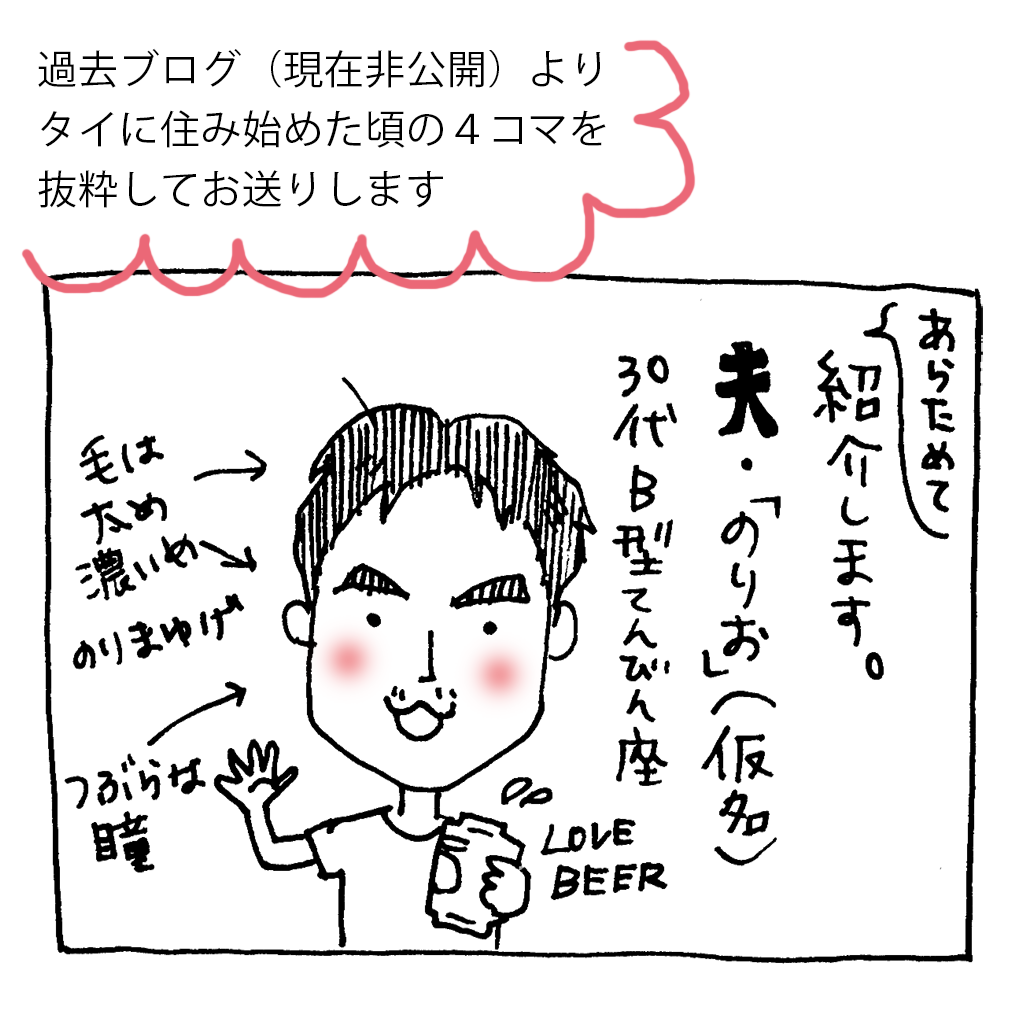 過去ブログ（現在非公開）より
タイに住み始めた頃の４コマを
抜粋してお送りします
あらためて
紹介します。
夫・「のりお」(仮名)
30代B型てんびん座
毛は
太め
濃いめ
のりまゆげ
つぶらな
瞳
LOVE
BEER